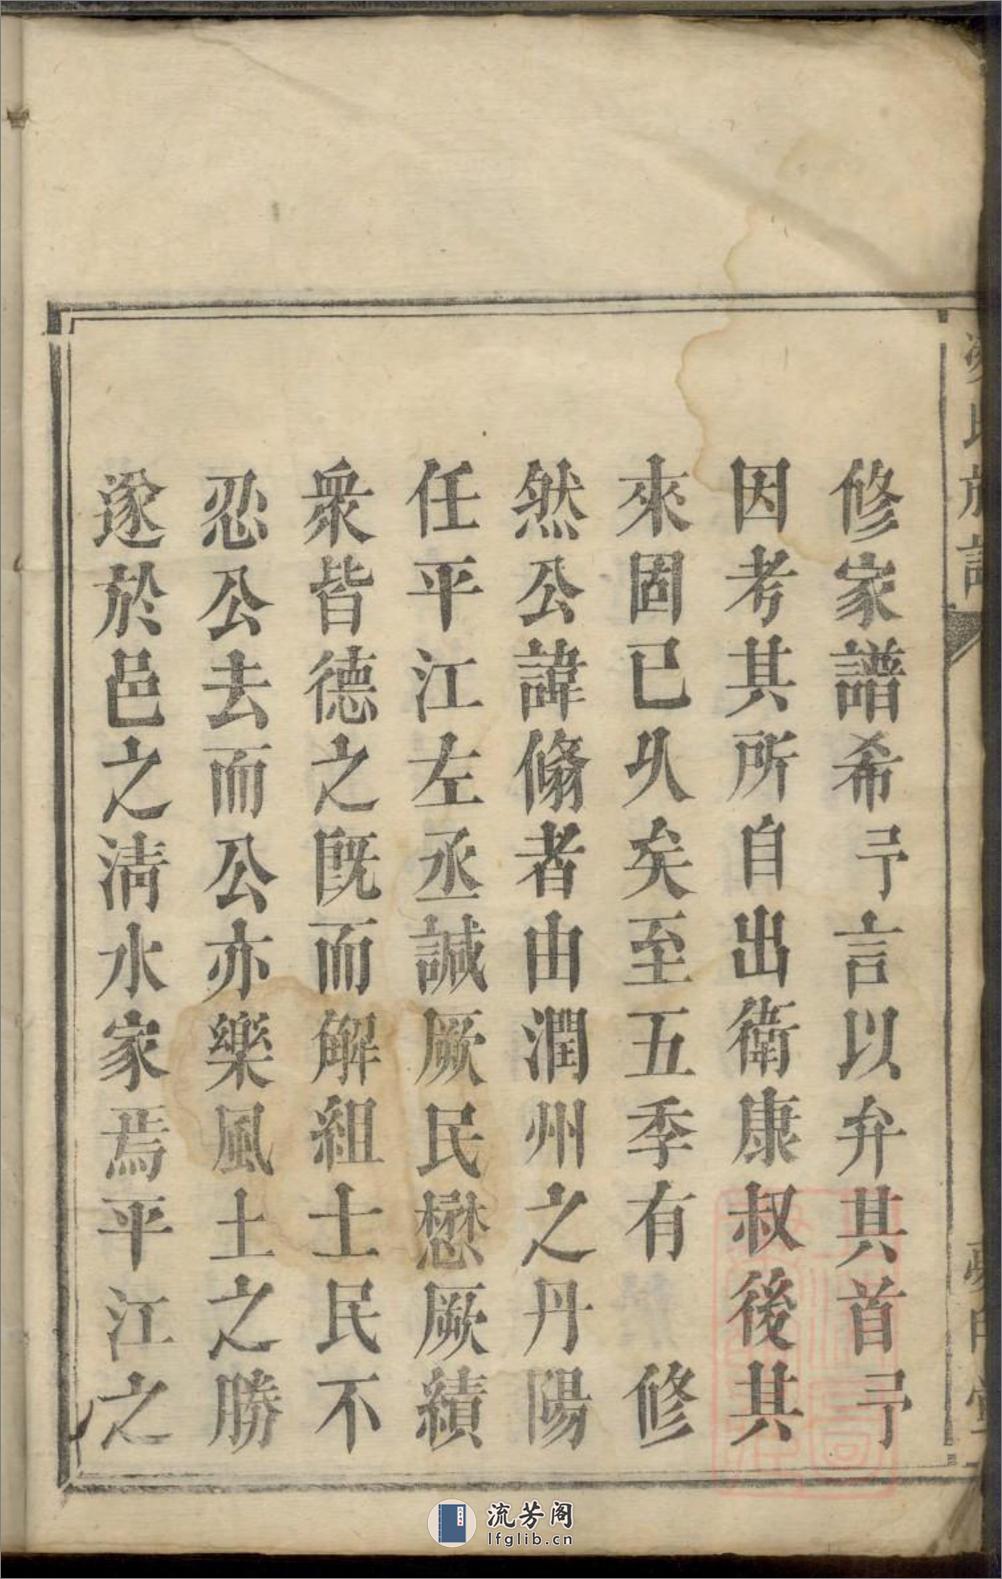 修家譜希予言以弁其首予
因考其所自出衛康叔後其
來固已久矣至五季有 修
然公諱翛者由潤州之丹陽
任平江左丞諴厥民懋厥績
衆皆德之旣而解組士民不
忍公去而公亦樂風土之勝
遂於邑之淸水家焉平江之
氏族譜
流芳阁
lfglib.cn